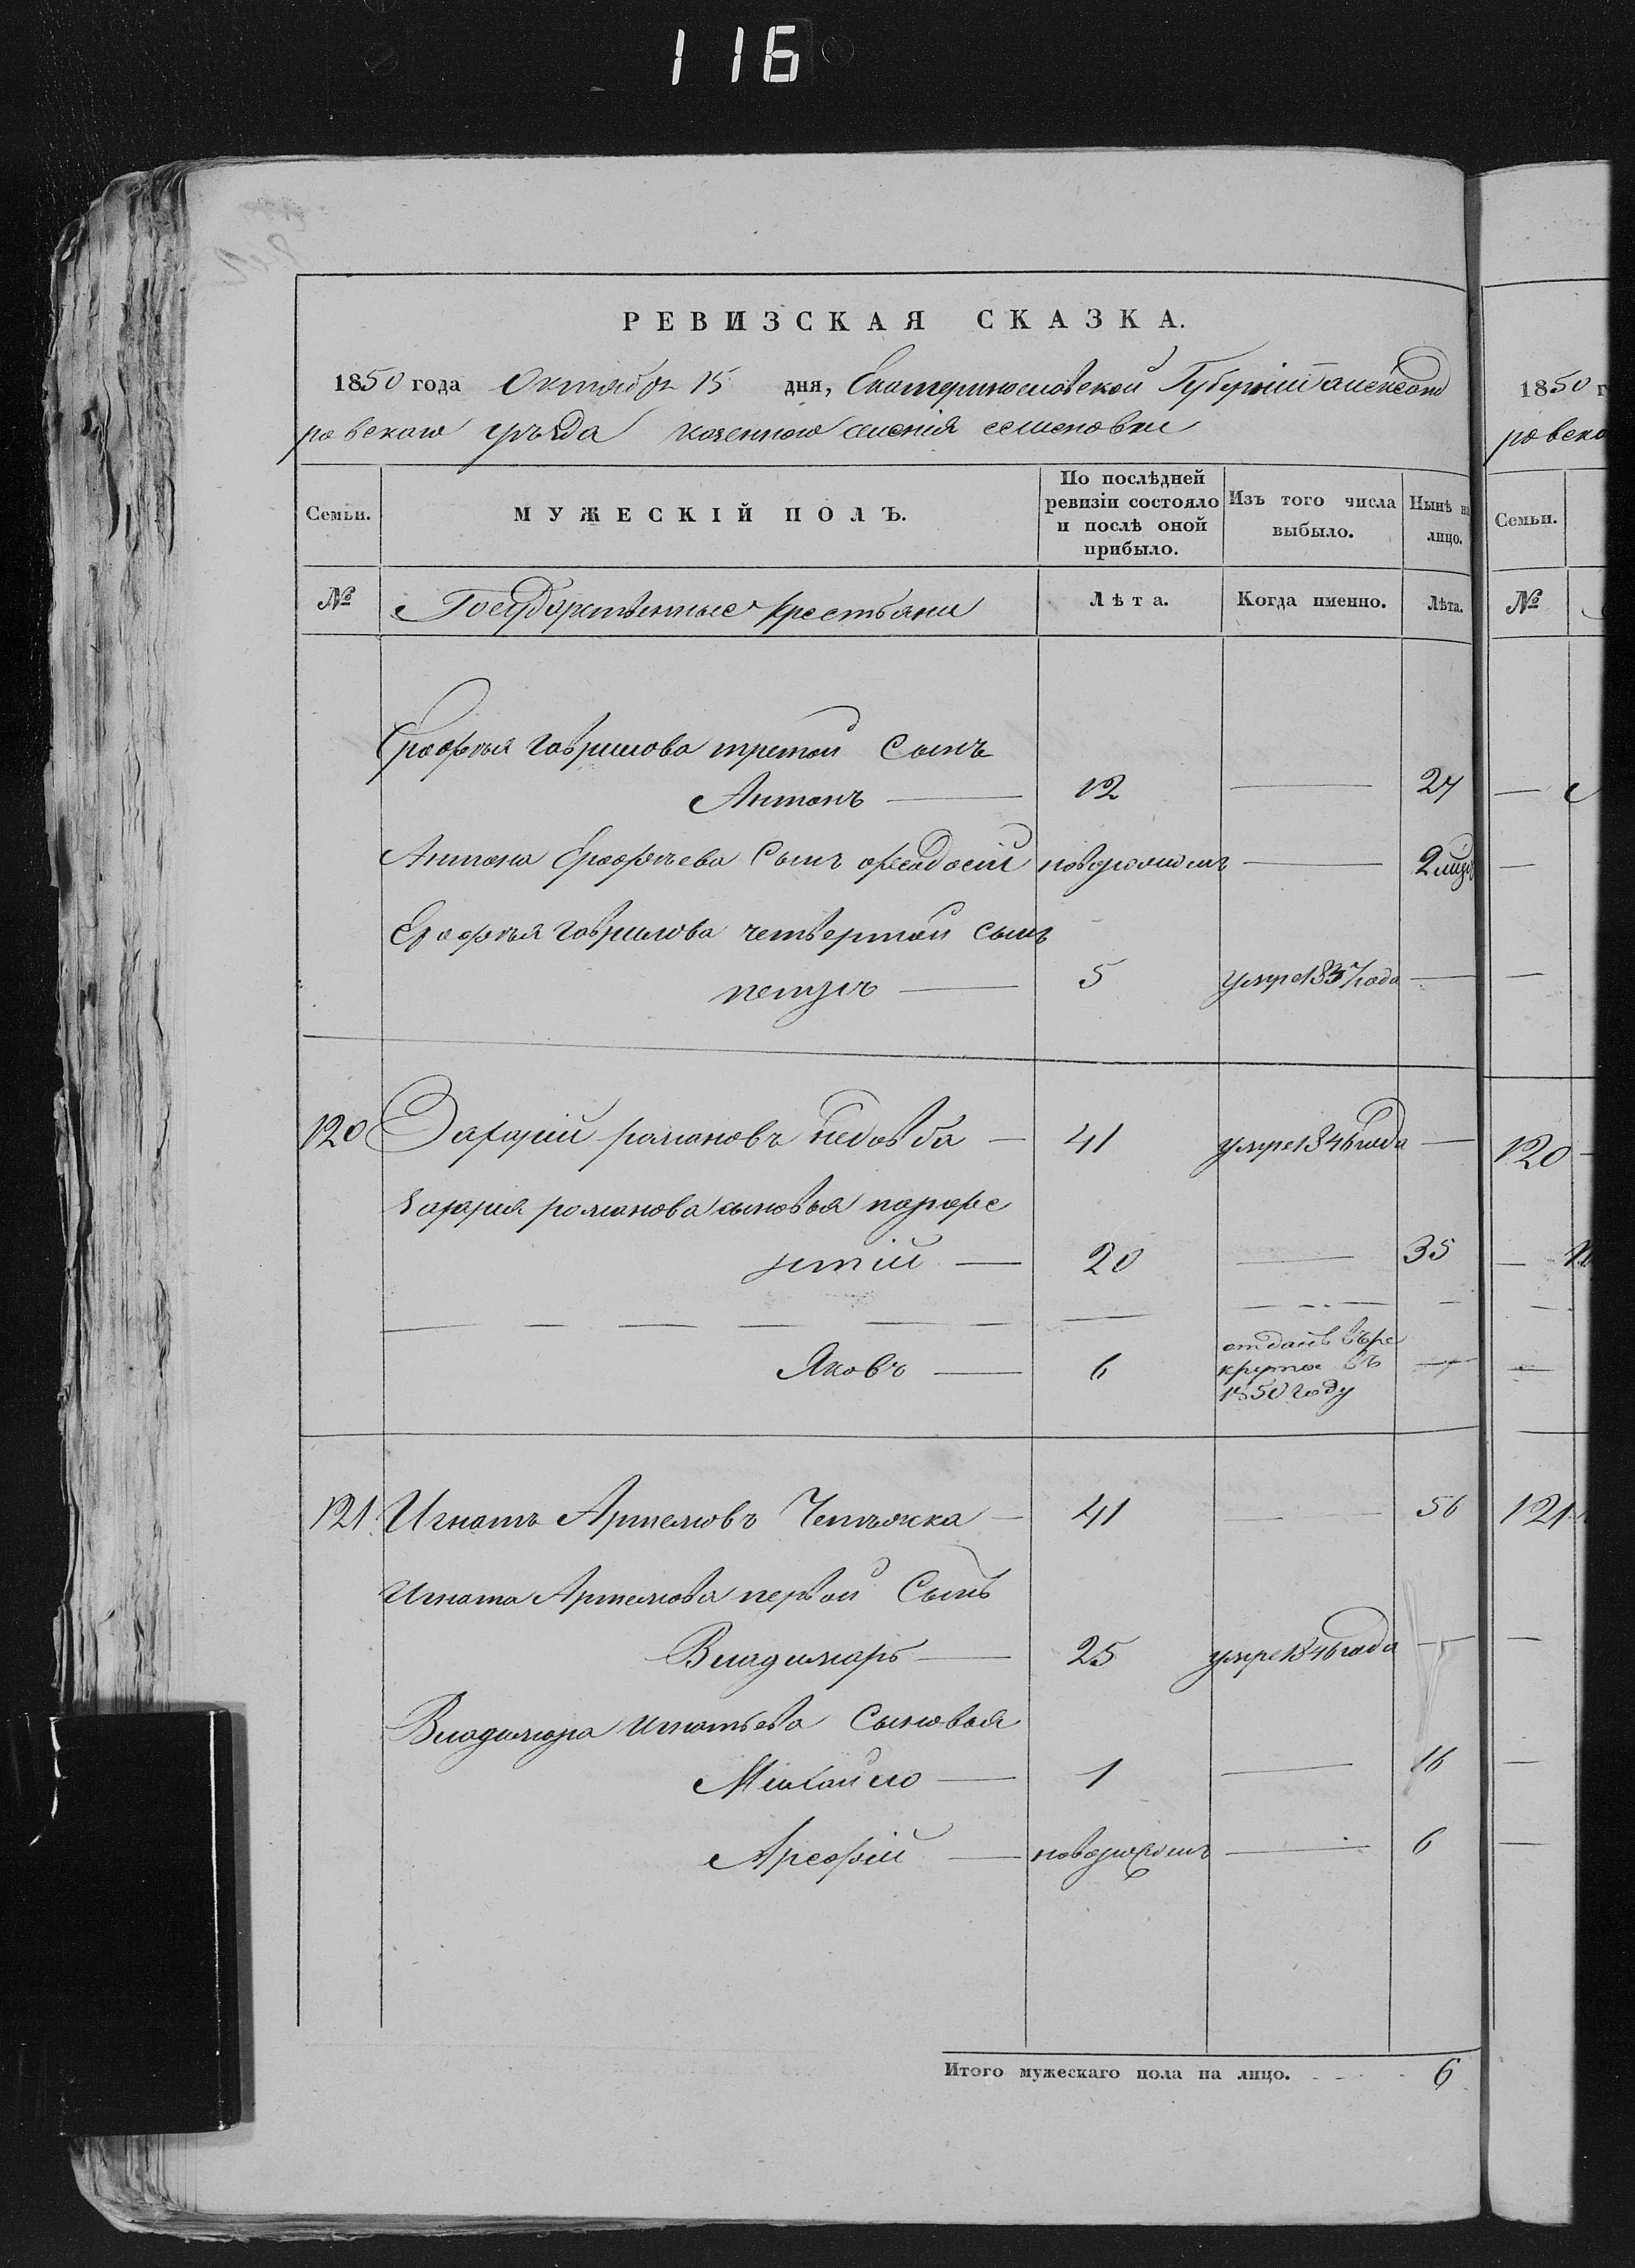 116
РЕВИЗСКАЯ СКАЗКА.
1850 года Октября 15 дня, Екатеринославской Губерніи Александ
ровскаго уѣзда казенного селенія семеновки
Семьи.
МУЖЕСКІЙ ПОЛЪ.
По послѣдней ревизіи состояло и послѣ оной прибыло.
Изъ того числа выбыло.
Нынѣ на лицо.
№
Государственные крестьяни
Лѣта.
Когда именно.
Лѣта.
Ерофея гаврилова третой Сынъ
Антонъ — 12 — 27
Антона Ерофеева Сынъ феодосій новорожденъ — 2
Ерофея гаврилова четвертой сынъ
петръ — 5 умре 1837 года —
120 Захарий романовъ недовба — 41 умре 1846 года —
захария романова сыновья парфе
нтій — 20 — 35
Яковъ — 6 отданъ въ ре
круты въ
1850 году —
121 Игнатъ Артемовъ — 41 — 56
Игната Артемова первой Сынъ
Владимиръ — 25 умре 1846 года —
Владимира игнатьева Сыновья
Михайло — 1 — 16
Арефій — новорожденъ — 6
Итого мужескаго пола на лицо. 6
1850 г
ровска
Семьи.
№
120
121